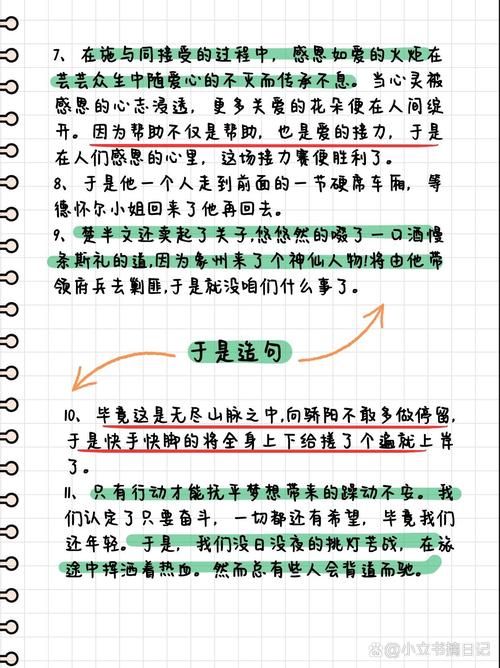 7、在施与同接受的过程中，感恩如爱的火炬在
芸芸众生中随爱心的不灭而传承不息。当心灵被
感恩的心志浸透，更多关爱的花朵便在人间绽
开。因为帮助不仅是帮助，也是爱的接力，于是
在人们感恩的心里，这场接力赛便胜利了。
8、于是他一个人走到前面的一节硬席车厢，等
德怀尔小姐回来了他再回去。
9、楚半文还卖起了关子,悠悠然的啜了一口酒慢
条斯礼的道,因为象州来了个神仙人物!将由他带
领府兵去剿匪,于是就没咱们什么事了。
于是造句
10、毕竟这是无尽山脉之中,向骄阳不敢多做停留,
于是快手快脚的将全身上下给搓了个遍就上岸
了。
11、只有行动才能抚平梦想带来的躁动不安。我
们认定了只要奋斗，一切都还有希望，毕竟我们
还年轻。于是，我们没日没夜的挑灯苦战，在旅
途中挥洒着热血。然而总有些人会背道而驰。
小立书摘日记